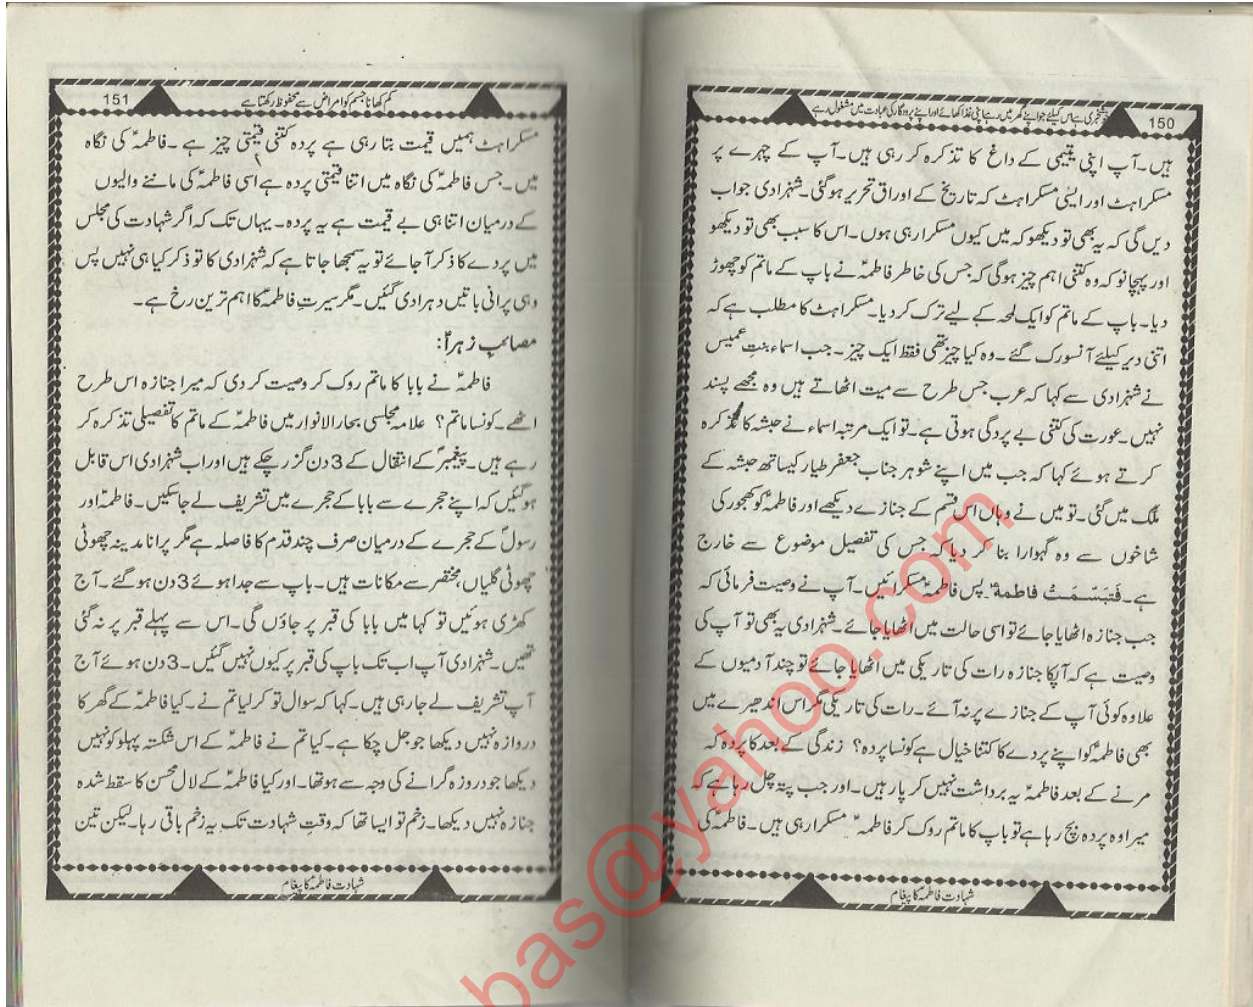 خوشخبری ہے اس کیلئے جو اپنے گھر میں رہے اپنی غذا کھائے اور اپنے پروردگار کی عبادت میں مشغول رہے
150
ہیں۔ آپ اپنی یتیمی کے داغ کا تذکرہ کر رہی ہیں۔ آپ کے چہرے پر
مسکراہٹ اور ایسی مسکراہٹ کہ تاریخ کے اوراق تحریر ہوگئی۔ شہزادی جواب
دیں گی کہ یہ بھی تو دیکھو کہ میں کیوں مسکرا رہی ہوں۔ اس کا سبب بھی تو دیکھو
اور پہچانو کہ وہ کتنی اہم چیز ہوگی کہ جس کی خاطر فاطمہؑ نے باپ کے ماتم کو چھوڑ
دیا۔ باپ کے ماتم کو ایک لمحہ کے لیے ترک کر دیا۔ مسکراہٹ کا مطلب ہے کہ
اتنی دیر کیلئے آنسو رک گئے۔ وہ کیا چیز تھی فقط ایک چیز۔ جب اسماء بنتِ عمیس
نے شہزادی سے کہا کہ عرب جس طرح سے میت اٹھاتے ہیں وہ مجھے پسند
نہیں۔ عورت کی کتنی بے پردگی ہوتی ہے۔ تو ایک مرتبہ اسماء نے حبشہ کا تذکرہ
کرتے ہوئے کہا کہ جب میں اپنے شوہر جناب جعفر طیار کیساتھ حبشہ کے
ملک میں گئی۔ تو میں نے وہاں اس قسم کے جنازے دیکھے اور فاطمہؑ کو کھجور کی
شاخوں سے وہ گہوارا بنا کر دیا کہ جس کی تفصیل موضوع سے خارج
ہے۔ فَتَبَسَّمَتْ فاطمة۔ پس فاطمہؑ مسکرائیں۔ آپ نے وصیت فرمائی کہ
جب جنازہ اٹھایا جائے تو اسی حالت میں اٹھایا جائے۔ شہزادی یہ بھی تو آپ کی
وصیت ہے کہ آپکا جنازہ رات کی تاریکی میں اٹھایا جائے تو چند آدمیوں کے
علاوہ کوئی آپ کے جنازے پر نہ آئے۔ رات کی تاریکی مگر اس اندھیرے میں
بھی فاطمہؑ کو اپنے پردے کا کتنا خیال ہے کونسا پردہ؟ زندگی کے بعد کا پردہ کہ
مرنے کے بعد فاطمہؑ یہ برداشت نہیں کر پا رہیں۔ اور جب پتہ چل رہا ہے کہ
میرا وہ پردہ بچ رہا ہے تو باپ کا ماتم روک کر فاطمہؑ مسکرا رہی ہیں۔ فاطمہؑ کی
شہادت فاطمہؑ کا پیغام
کم کھانا جسم کو امراض سے محفوظ رکھتا ہے
151
مسکراہٹ ہمیں قیمت بتا رہی ہے پردہ کتنی قیمتی چیز ہے۔ فاطمہؑ کی نگاہ
میں۔ جس فاطمہؑ کی نگاہ میں اتنا قیمتی پردہ ہے اسی فاطمہؑ کی ماننے والیوں
کے درمیان اتنا ہی بے قیمت ہے یہ پردہ۔ یہاں تک کہ اگر شہادت کی مجلس
میں پردے کا ذکر آ جائے تو یہ سمجھا جاتا ہے کہ شہزادی کا تو ذکر کیا ہی نہیں پس
وہی پرانی باتیں دہرا دی گئیں۔ مگر سیرتِ فاطمہؑ کا اہم ترین رخ ہے۔
مصائبِ زہراؑ:
فاطمہؑ نے بابا کا ماتم روک کر وصیت کر دی کہ میرا جنازہ اس طرح
اٹھے۔ کونسا ماتم؟ علامہ مجلسی بحار الانوار میں فاطمہؑ کے ماتم کا تفصیلی تذکرہ کر
رہے ہیں۔ پیغمبرؐ کے انتقال کے 3 دن گزر چکے ہیں اور اب شہزادی اس قابل
ہوگئیں کہ اپنے حجرے سے بابا کے حجرے میں تشریف لے جا سکیں۔ فاطمہؑ اور
رسولؐ کے حجرے کے درمیان صرف چند قدم کا فاصلہ ہے مگر پرانا مدینہ چھوٹی
چھوٹی گلیاں، مختصر سے مکانات ہیں۔ باپ سے جدا ہوئے 3 دن ہو گئے۔ آج
کھڑی ہوئیں تو کہا میں بابا کی قبر پر جاؤں گی۔ اس سے پہلے قبر پر نہ گئی
تھیں۔ شہزادی آپ اب تک باپ کی قبر پر کیوں نہیں گئیں۔ 3 دن ہوئے آج
آپ تشریف لے جا رہی ہیں۔ کہا کہ سوال تو کر لیا تم نے۔ کیا فاطمہؑ کے گھر کا
دروازہ نہیں دیکھا جو جل چکا ہے۔ کیا تم نے فاطمہؑ کے اس شکستہ پہلو کو نہیں
دیکھا جو دروزہ گرانے کی وجہ سے ہو تھا۔ اور کیا فاطمہؑ کے لال محسن کا سقط شدہ
جنازہ نہیں دیکھا۔ زخم تو ایسا تھا کہ وقتِ شہادت تک یہ زخم باقی رہا۔ لیکن تین
شہادت فاطمہؑ کا پیغام
bas@yahoo.com